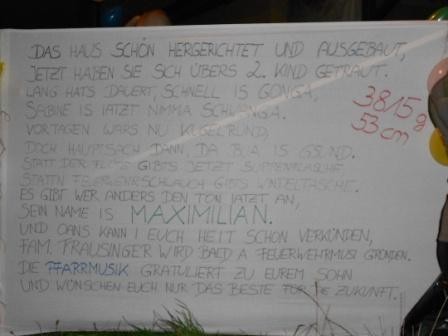 DAS HAUS SCHÖN HERGERICHTET UND AUSGEBAUT,
JETZT HABEN SIE SICH ÜBERS 2. KIND GETRAUT.
LANG HATS DAUERT, SCHNELL IS GONGA,
SABINE IS IATZT NIMMA SCHWANGA.
VOR TAGEN WARS NU KUGELRUND,
DOCH HAUPTSACH DANN, DA BUA IS GSUND.
STATT DER GIBTS JETZT SUPPENFLASCHE
STATTN FEUERWEHRSCHLAUCH GIBTS WINDELTASCHE.
ES GIBT WER ANDERS DEN TON IATZT AN,
SEIN NAME IS MAXIMILIAN.
UND OANS KANN I EUCH HEIT SCHON VERKÜNDEN,
FAM. TRAUSINGER WIRD BALD A FEUERWEHRMUSI GRÜNDEN.
DIE PFARRMUSIK GRATULIERT ZU EUREM SOHN
UND WÜNSCHEN EUCH NUR DAS BESTE FÜR DIE ZUKUNFT.
3815g
53cm